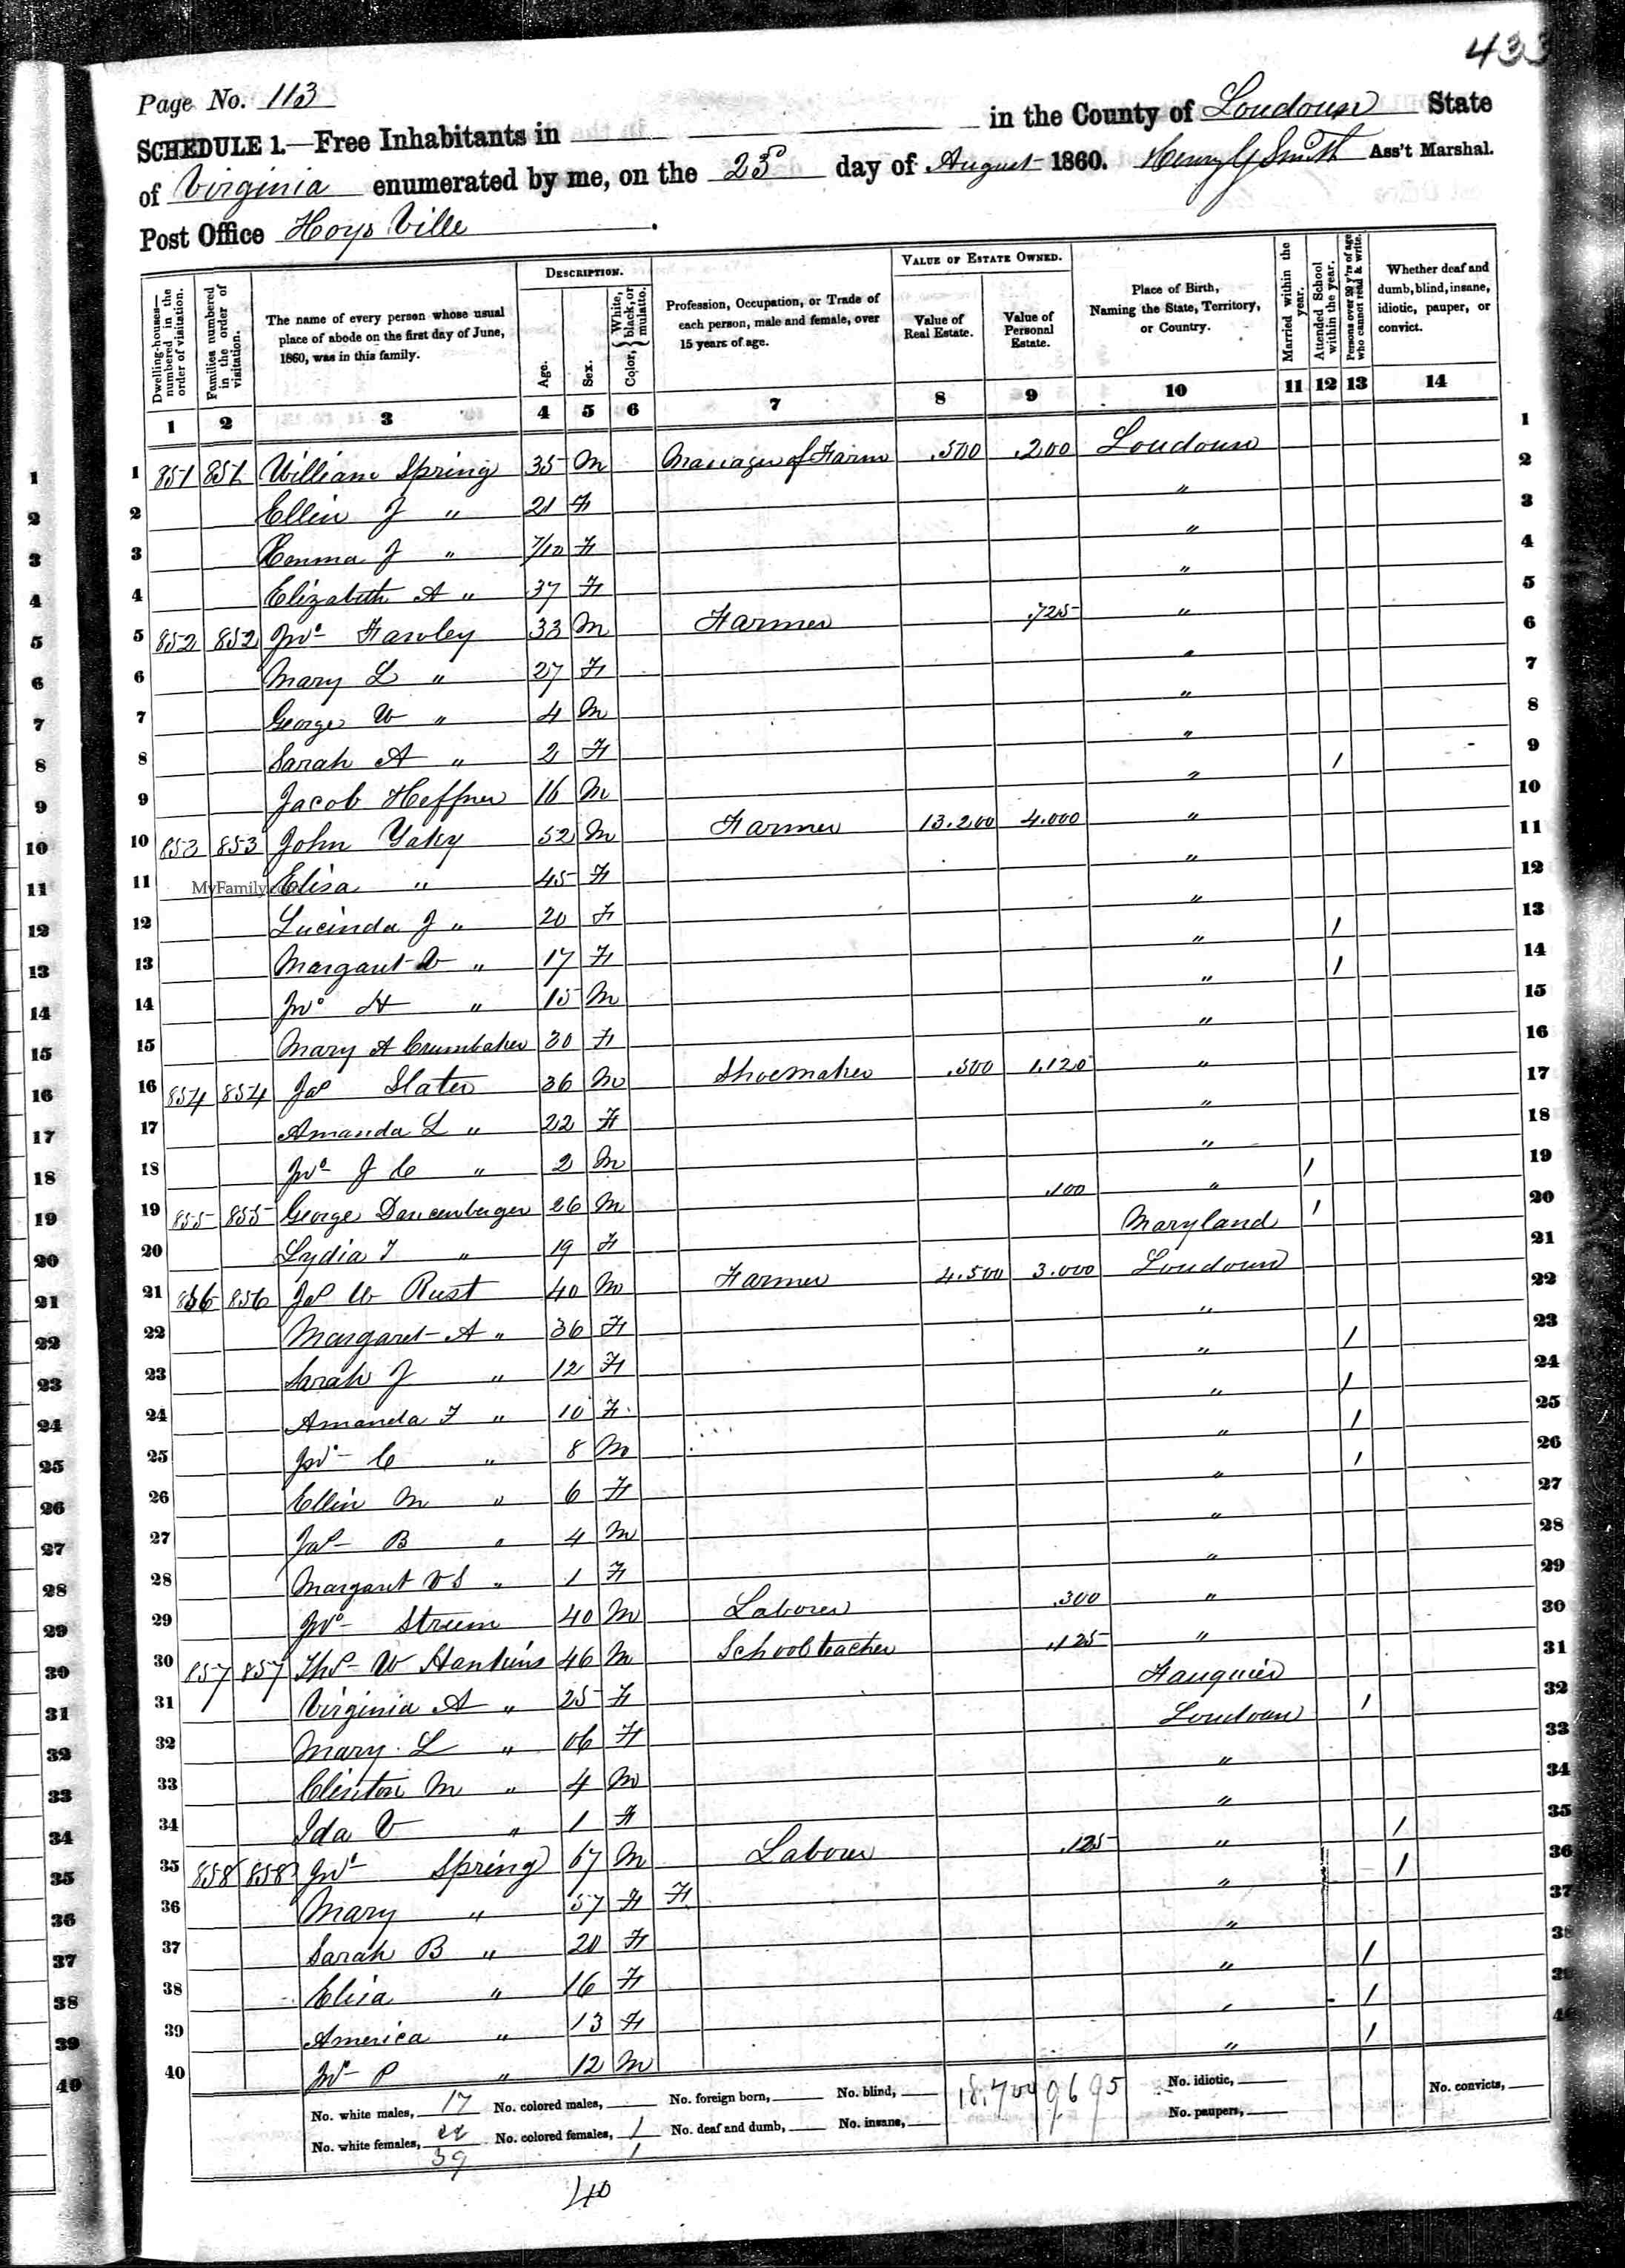 433
Page No. 113
SCHEDULE 1.—Free Inhabitants in in the County of Loudoun State
of Virginia enumerated by me, on the 23d day of August 1860. Henry G Smith Ass't Marshal.
Post Office Hoys Ville
Dwelling-houses— numbered in the order of visitation.
Families numbered in the order of visitation.
The name of every person whose usual place of abode on the first day of June, 1860, was in this family.
DESCRIPTION.
Age.
Sex.
Color, { White, black, or mulatto.
Profession, Occupation, or Trade of each person, male and female, over 15 years of age.
VALUE OF ESTATE OWNED.
Value of Real Estate.
Value of Personal Estate.
Place of Birth, Naming the State, Territory, or Country.
Married within the year.
Attended School within the year.
Persons over 20 y'rs of age who cannot read & write.
Whether deaf and dumb, blind, insane, idiotic, pauper, or convict.
1 2 3 4 5 6 7 8 9 10 11 12 13 14
1 851 851 William Spring 35 M Manager of Farm .500 .200 Loudoun
2 Ellin J " 21 F "
3 Emma J " 7/12 F "
4 Elizabeth A " 37 F "
5 852 852 Jno Fawley 33 M Farmer .725 "
6 Mary L " 27 F "
7 George W " 4 M "
8 Sarah A " 2 F "
9 Jacob Heffner 16 M " /
10 853 853 John Yaky 52 M Farmer 13.200 4.000 "
11 MyFamily Elisa " 45 F "
12 Lucinda J " 20 F "
13 Margaret V " 17 F " /
14 Jno H " 15 M " /
15 Mary A Crumbaker 30 F "
16 854 854 Jas Slater 36 M Shoemaker .500 1.120 "
17 Amanda L " 22 F "
18 Jno J C " 2 M "
19 855 855 George Dancenberger 26 M .100 " /
20 Lydia F " 19 F Maryland /
21 856 856 Jas W Rust 40 M Farmer 4.500 3.000 Loudoun
22 Margaret A " 36 F "
23 Sarah J " 12 F " /
24 Amanda F " 10 F " /
25 Jno C " 8 M " /
26 Ellin M " 6 F " /
27 Jas B " 4 M "
28 Margaret V S " 1 F "
29 Jno Streem 40 M Laborer .300 "
30 857 857 Thos W Hankins 46 M Schoolteacher .125 "
31 Virginia A " 25 F Fauquier
32 Mary L " 06 F Loudoun /
33 Clinton M " 4 M "
34 Ida V " 1 F "
35 858 858 Jno Spring 67 M Laborer .125 " /
36 Mary " 57 F F " /
37 Sarah B " 20 F "
38 Elisa " 16 F " /
39 America " 13 F " /
40 Jno P " 12 M " /
No. white males, 17 No. colored males, No. foreign born, No. blind, 18.700 9695 No. idiotic, No. convicts,
No. white females, 22 No. colored females, 1 No. deaf and dumb, No. insane, No. paupers,
39 1
40